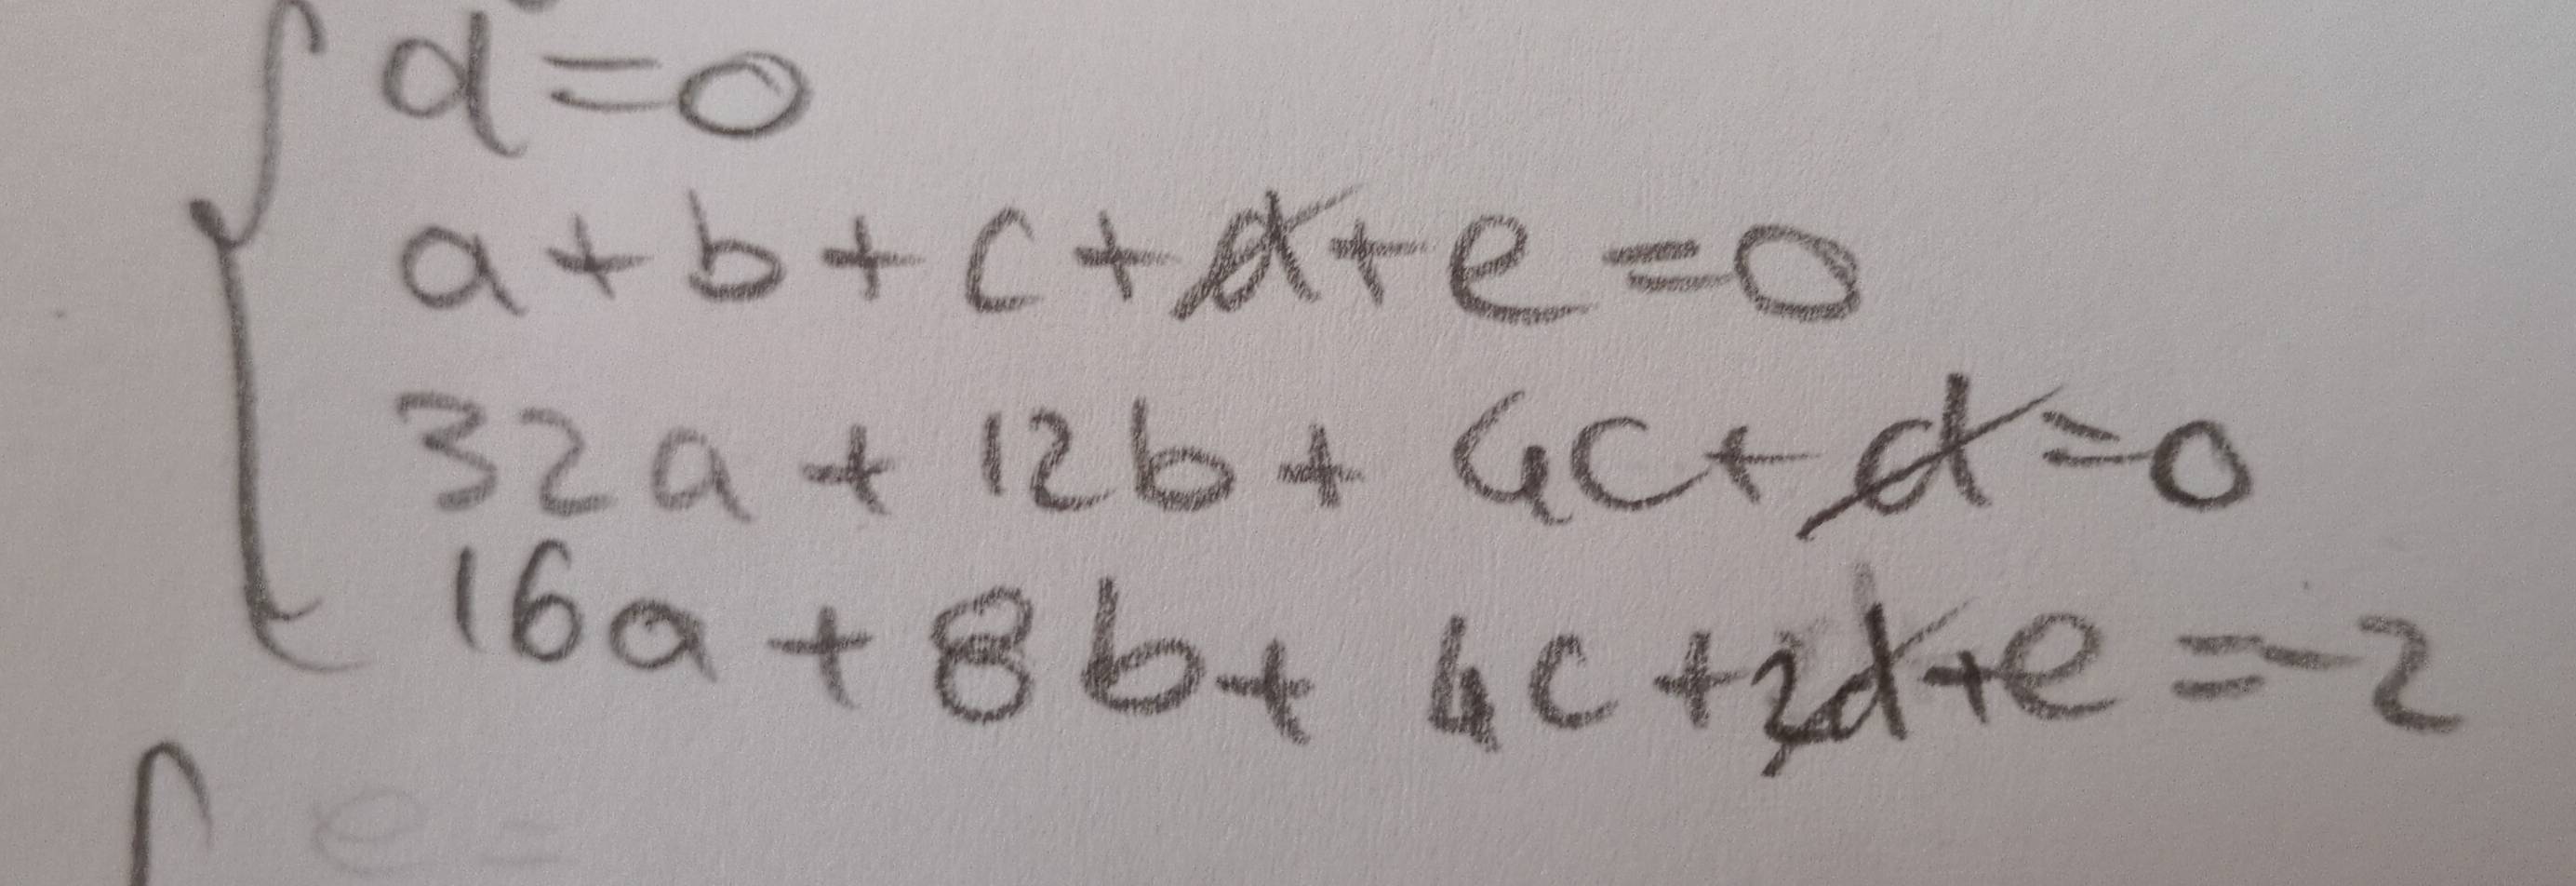 d=0
a+b+c+d+e=0
32a+12b+4c+d=0
16a+8b+4c+2d+e=-2
e=